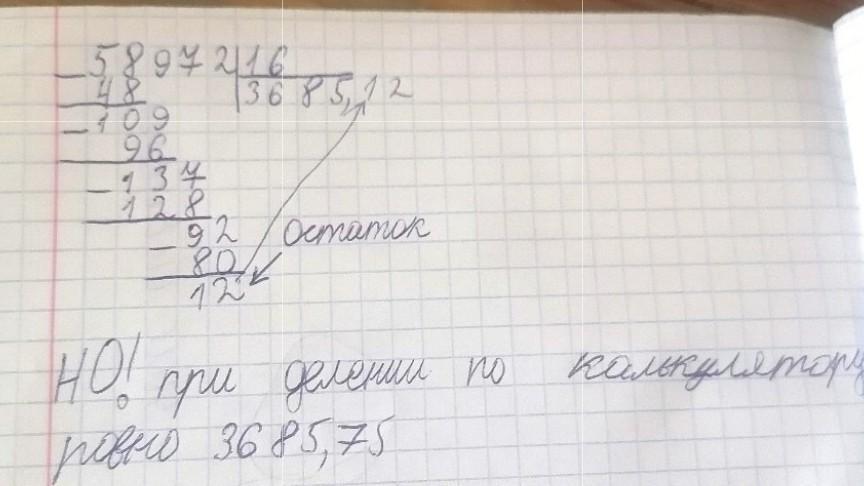 58972 16
48 3685,12
109
96
137
128
92 остаток
80
12
НО! при делении по калькулятору
ровно 3685,75